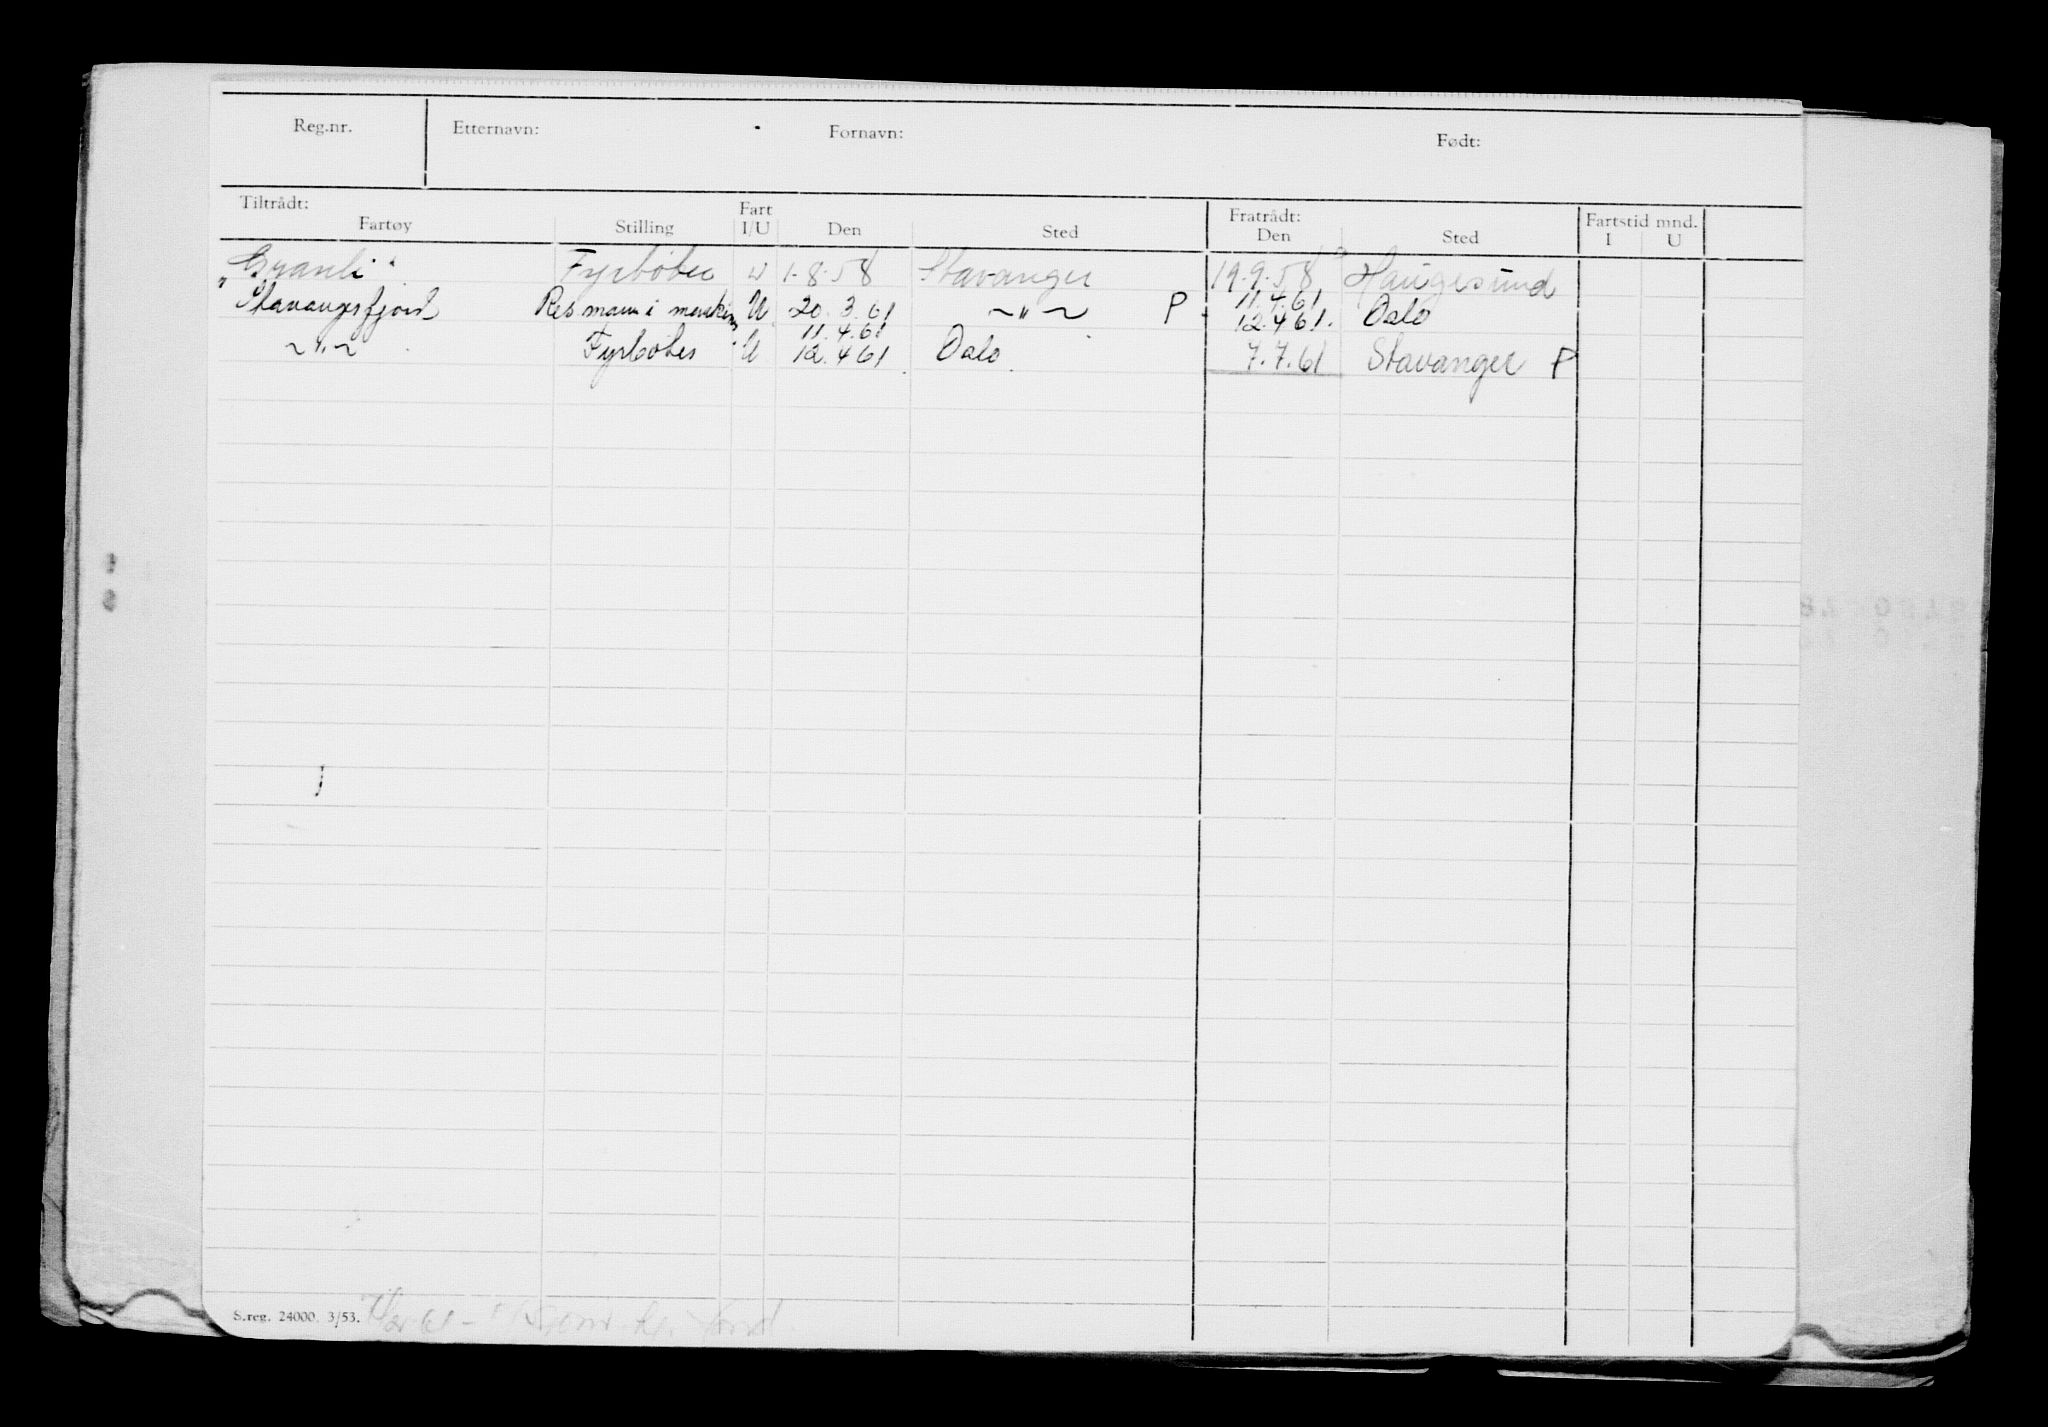 Reg.nr. Etternavn: Fornavn: Født:
Tiltrådt: Fratrådt: Fartstid mnd.
Fartøy Stilling Fart I/U Den Sted Den Sted I U
"Granli" Fyrbøter U 1.8.58 Stavanger 19.9.58 Haugesund
Stavangerfjord Res mann i maskin U 20.3.61 ~"~ P 11.4.61 12.4.61. Oslo
~"~ Fyrbøter U 11.4.61 12.4.61 Oslo 7.7.61 Stavanger P
S.reg. 24000. 3/53.